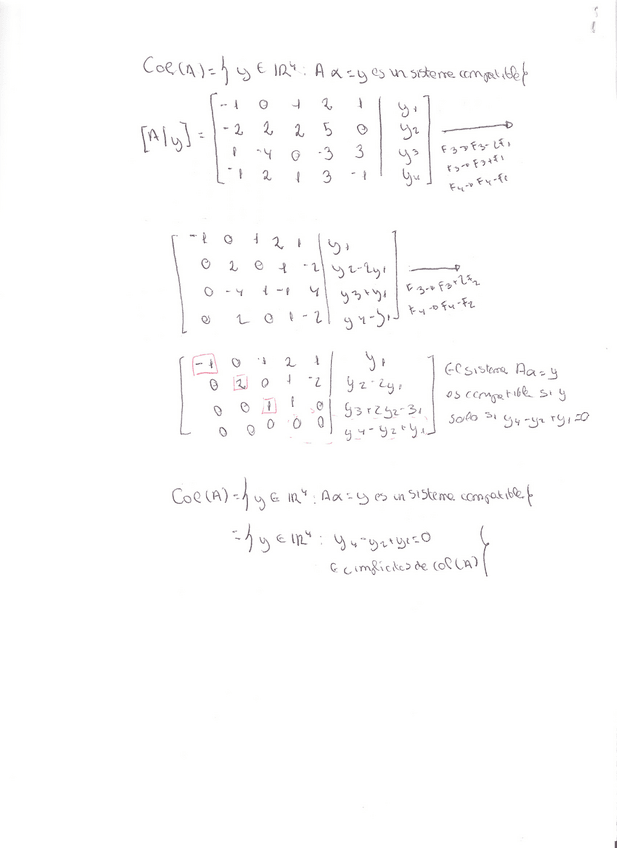 Col(A) = { y ∈ IR⁴ : A x = y es un sistema compatible }
[A|y] = [ -1 0 1 2 1 | y₁
-2 2 2 5 0 | y₂
1 -4 0 -3 3 | y₃
-1 2 1 3 -1 | y₄ ] →
F3→F3-2F1
F3→F3+F1
F4→F4-F1
[ -1 0 1 2 1 | y₁
0 2 0 1 -2 | y2-2y₁
0 -4 1 -1 4 | y3+y₁
0 2 0 1 -2 | y4-y₁ ] →
F3→F3+2F2
F4→F4-F2
[ -1 0 1 2 1 | y₁
0 2 0 1 -2 | y2-2y₁
0 0 1 1 0 | y3+2y2-3₁
0 0 0 0 0 | y4-y2+y₁ ]
El sistema Ax=y
es compatible si y
solo si y4-y2+y₁=0
Col(A) = { y ∈ IR⁴ : Ax = y es un sistema compatible }
= { y ∈ IR⁴ : y4-y2+y1=0 }
Ec implícitas de Col(A)